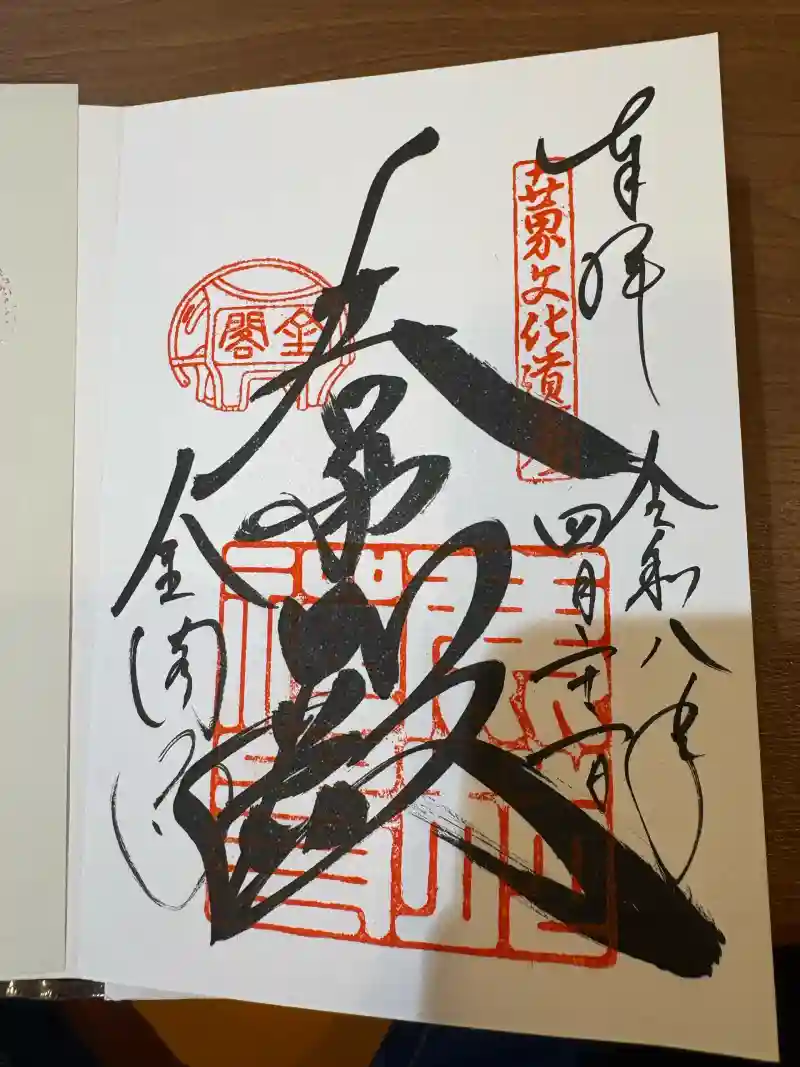 奉拝
令和八年
四月二十一日
世界文化遺産
舎利殿
金閣
金閣寺